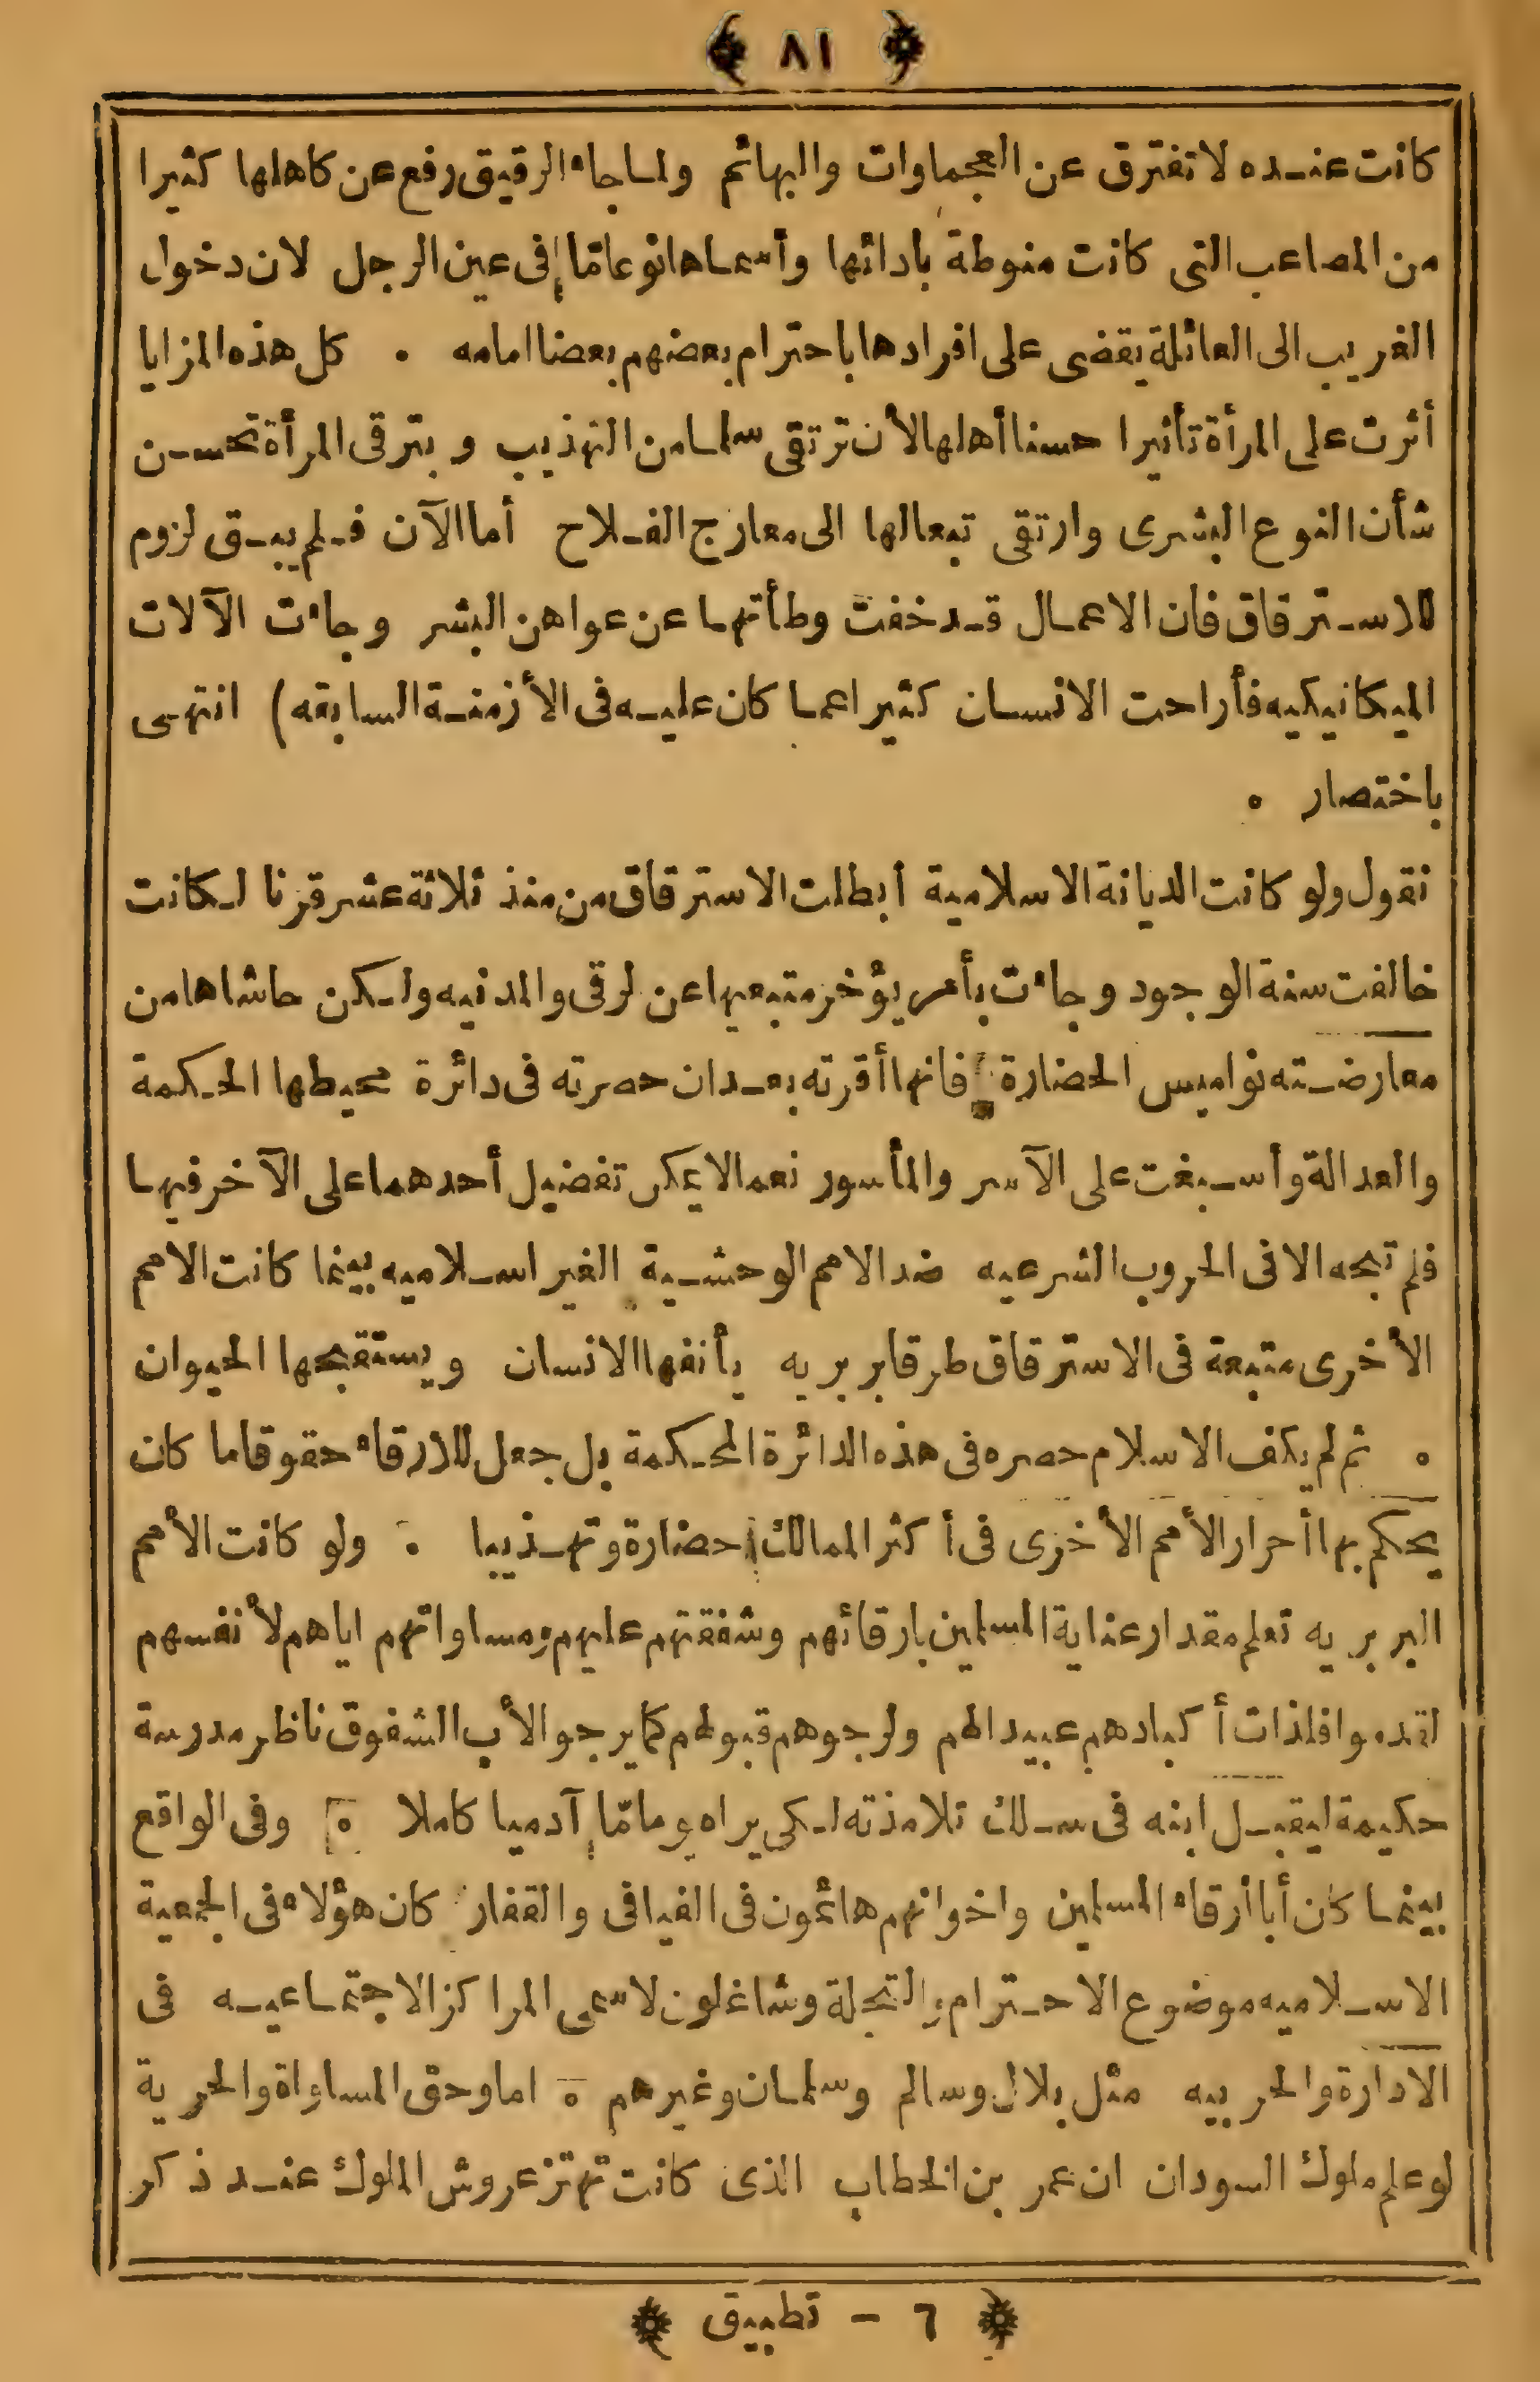 ﴿ ٨١ ﴾
كانت عنده لا تفترق عن العجماوات والبهائم ولما جاء الرقيق رفع عن كاهلها كثيرا
من المصاعب التى كانت منوطة بادائها وأسماها نوعا مّا فى عين الرجل لان دخول
الغريب الى العائلة يقضى على افرادها باحترام بعضهم بعضا امامه . كل هذه المزايا
أثرت على المرأة تأثيرا حسنا أهلها لأن ترتقى سلما من التهذيب وبترقى المرأة تحسن
شأن النوع البشرى وارتقى تبعا لها الى معارج الفلاح أما الآن فلم يبق لزوم
للاسترقاق فان الاعمال قد خفت وطأتها عن عواهن البشر وجاءت الآلات
الميكانيكيه فأراحت الانسان كثيرا عما كان عليه فى الأزمنة السابقه) انتهى
باختصار .
نقول ولو كانت الديانة الاسلامية أبطلت الاسترقاق من منذ ثلاثة عشر قرنا لكانت
خالفت سنة الوجود وجاءت بأمر يؤخر متبعيها عن لرقى والمدنيه ولكن حاشاها من
معارضته نواميس الحضارة فانها أقرته بعد ان حصرته فى دائرة محيطها الحكمة
والعدالة وأسبغت على الآسر والمأسور نعما لا يمكن تفضيل أحدهما على الآخر فيها
فلم تبحه الا فى الحروب الشرعيه ضد الامم الوحشية الغير اسلاميه بينما كانت الامم
الأخرى متبعة فى الاسترقاق طرقا بربريه يأنفها الانسان ويستقبحها الحيوان
. ثم لم يكف الاسلام حصره فى هذه الدائرة المحكمة بل جعل للارقاء حقوقا ما كان
يحكم بها أحرار الأمم الأخرى فى أكثر الممالك حضارة وتهذيبا . ولو كانت الأمم
البربريه تعلم مقدار عناية المسلمين بارقائهم وشفقتهم عليهم ومساواتهم اياهم لأنفسهم
لقدموا فلذات أكبادهم عبيدا لهم ولرجوهم قبولهم كما يرجو الأب الشفوق ناظر مدرسة
حكيمة ليقبل ابنه فى سلك تلامذته لكى يراه يوما مّا آدميا كاملا . وفى الواقع
بينما كان أبا أرقاء المسلمين واخوانهم هائمون فى الفيافى والقفار كان هؤلاء فى الجمعية
الاسلاميه موضوع الاحترام والتجلة وشاغلون لاسمى المراكز الاجتماعيه فى
الادارة والحربيه مثل بلال وسالم وسلمان وغيرهم . اما وحق المساواة والحرية
لو علم ملوك السودان ان عمر بن الخطاب الذى كانت تهتز عروش الملوك عند ذكر
﴿ ٦ – تطبيق ﴾